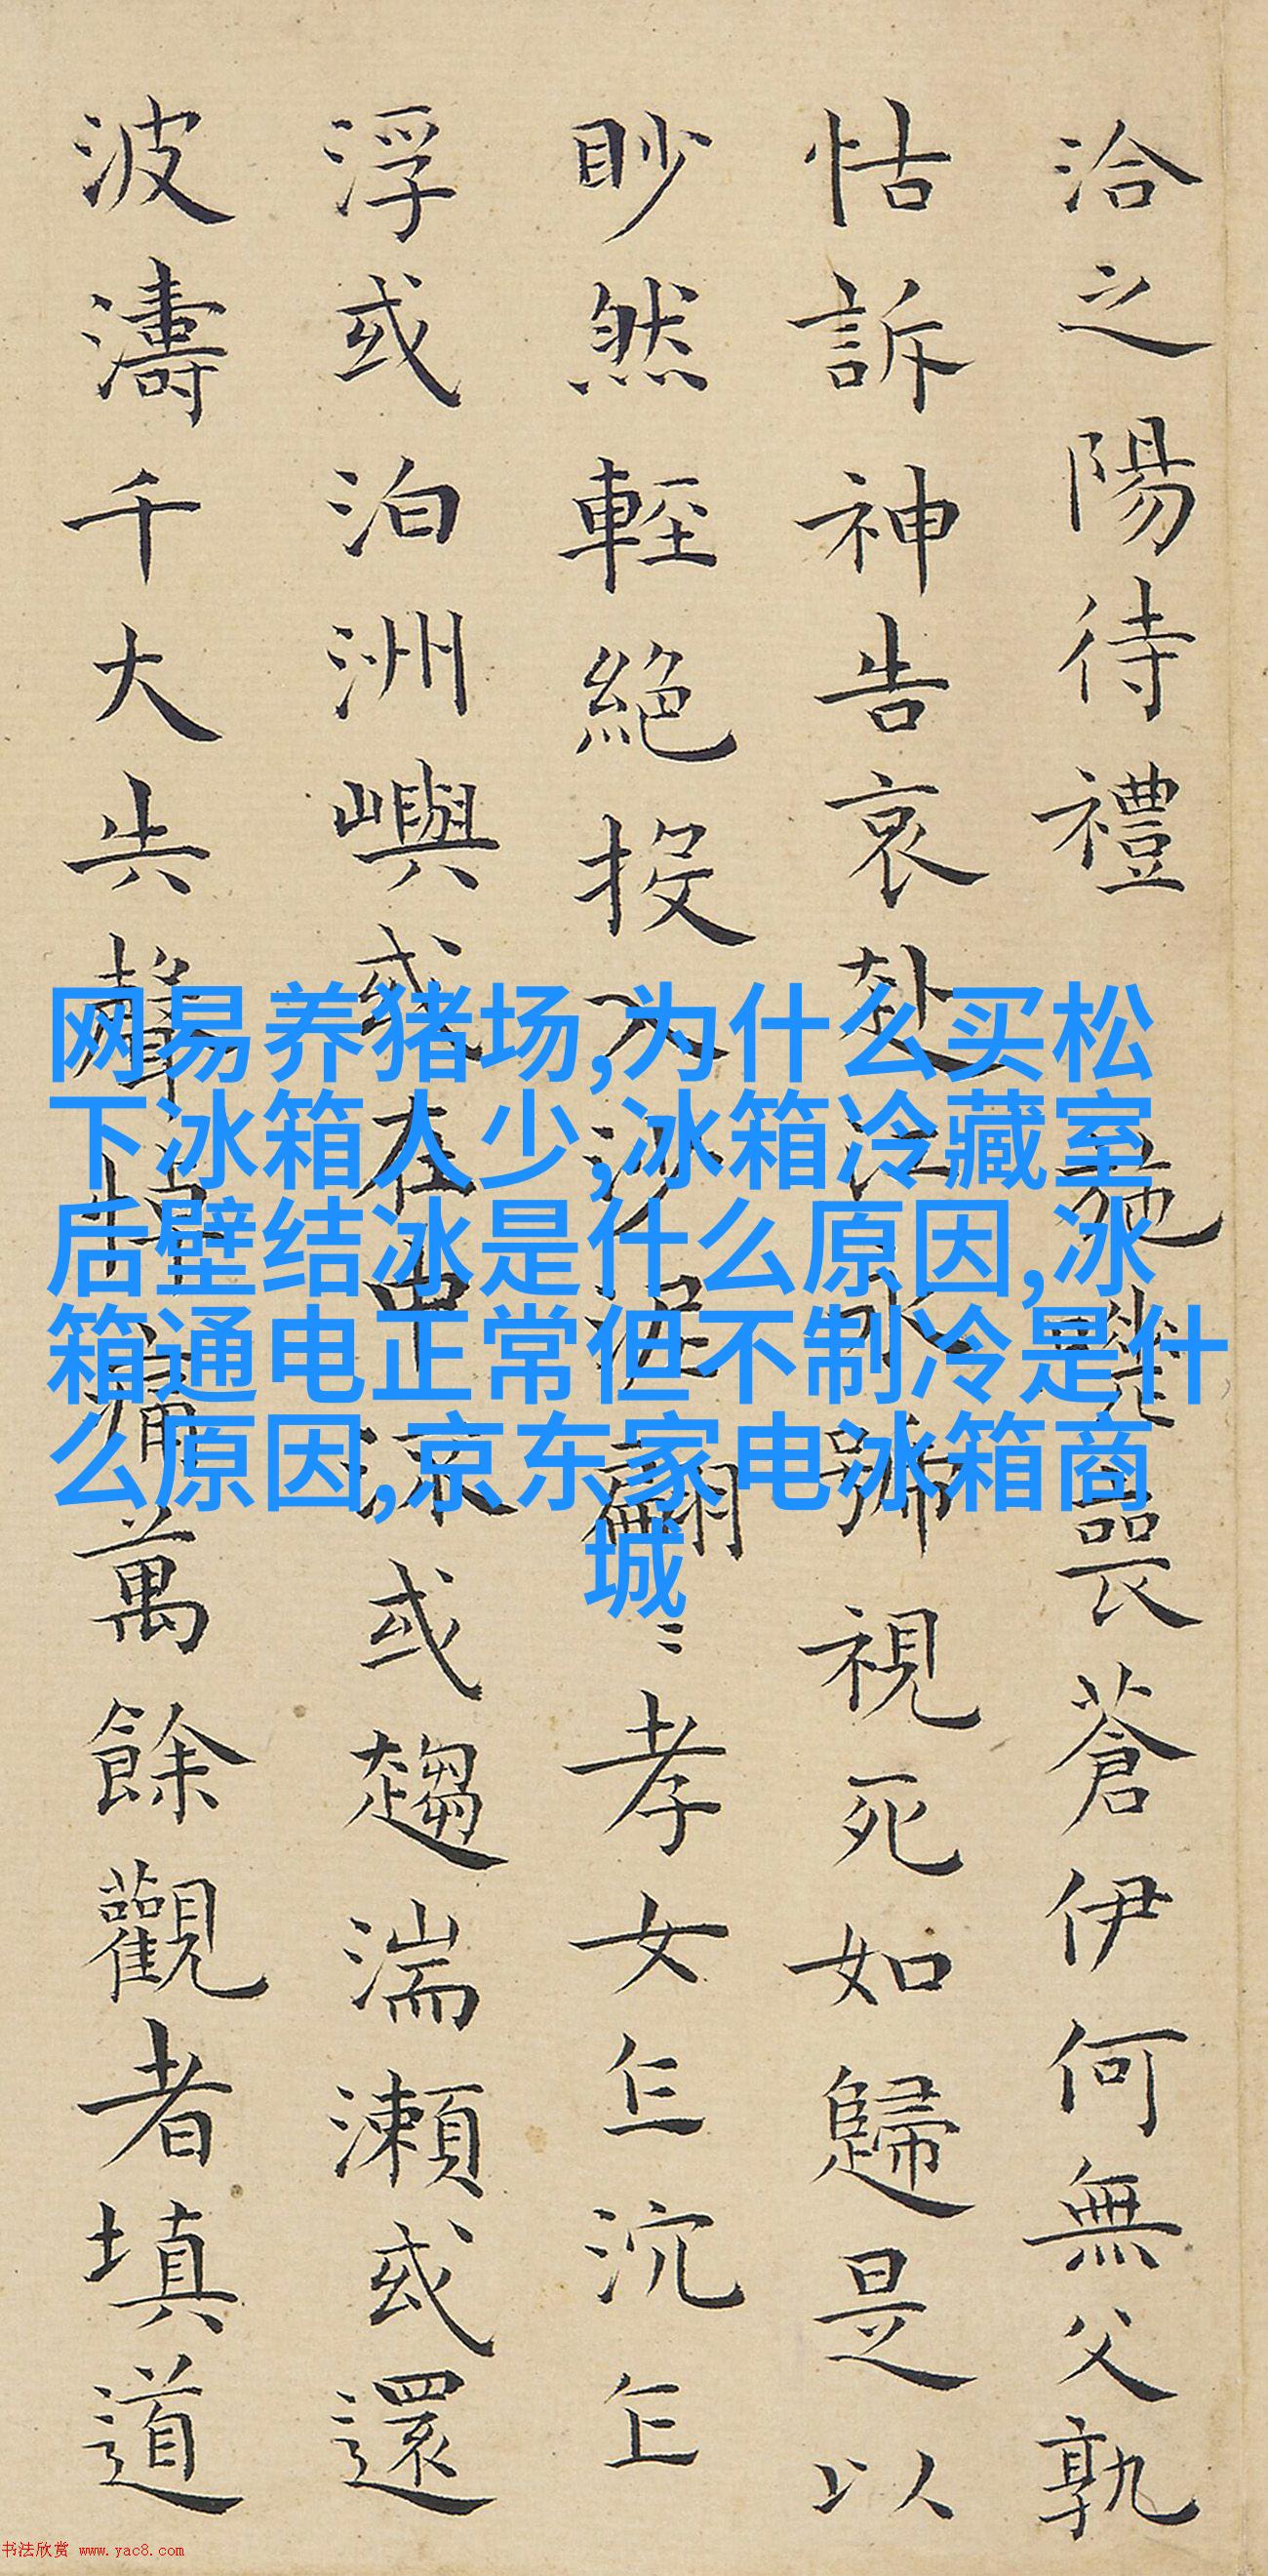 洽之陽待禮施嗟喪蒼伊何無父孰
怙訴神告哀赴江永號視死如歸是以
眇然輕絕投入沙泥翩〻孝女乍沉乍
浮或泊洲嶼或在中流或趨湍瀨或還
波濤千大失聲悼痛萬餘觀者填道
网易养猪场,为什么买松
下冰箱人少,冰箱冷藏室
后壁结冰是什么原因,冰
箱通电正常但不制冷是什
么原因,京东家电冰箱商
城
书法欣赏 www.yac8.com